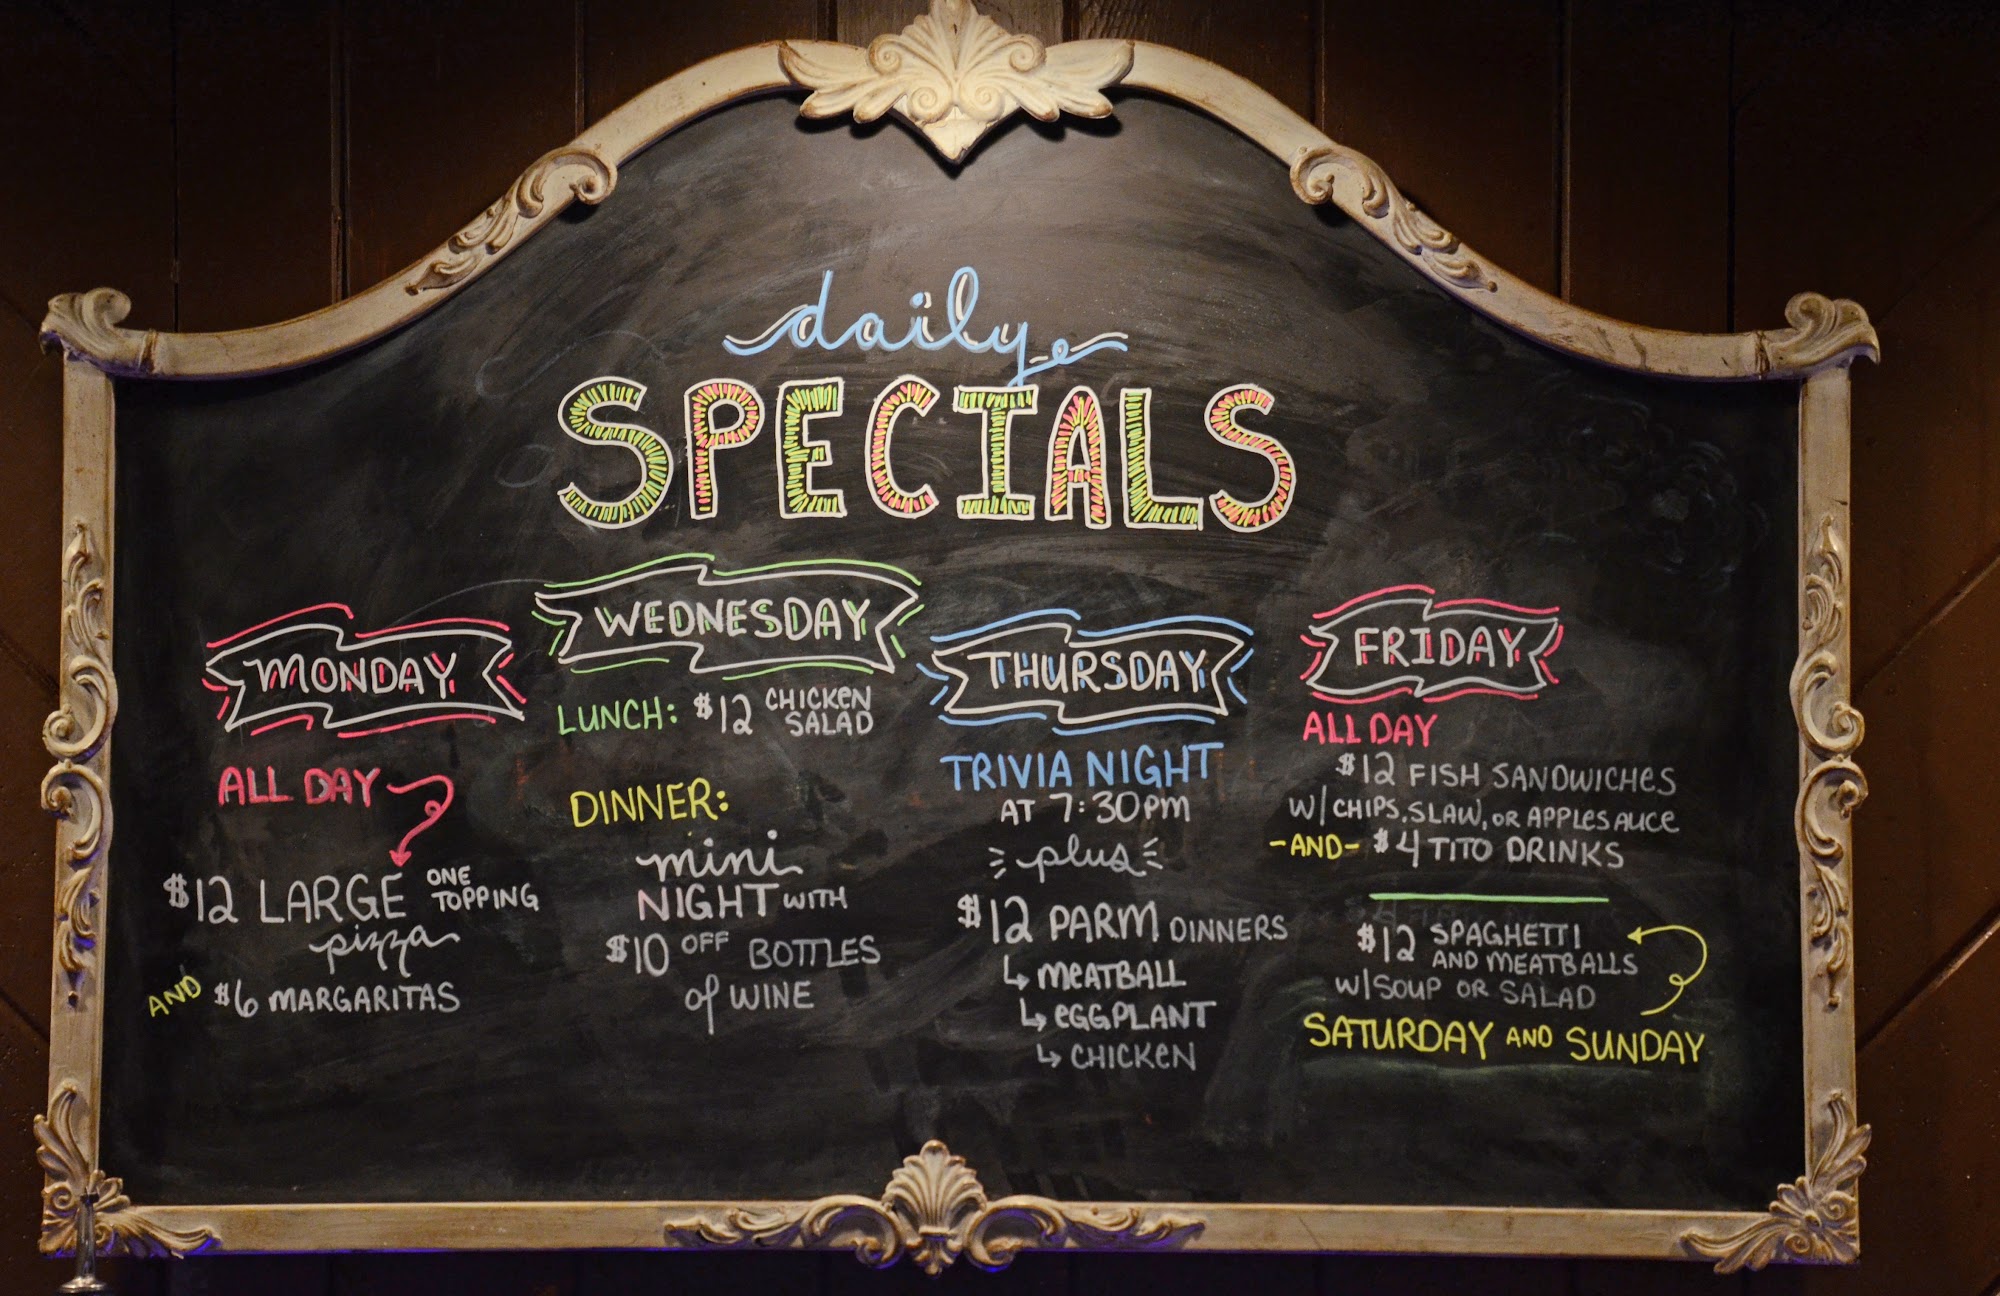 daily
SPECIALS
MONDAY
ALL DAY
$12 LARGE ONE TOPPING
pizza
AND $6 MARGARITAS
WEDNESDAY
LUNCH: $12 CHICKEN SALAD
DINNER:
mini
NIGHT WITH
$10 OFF BOTTLES
of WINE
THURSDAY
TRIVIA NIGHT
AT 7:30PM
plus
$12 PARM DINNERS
↳ MEATBALL
↳ EGGPLANT
↳ CHICKEN
FRIDAY
ALL DAY
$12 FISH SANDWICHES
W/ CHIPS, SLAW, OR APPLESAUCE
-AND- $4 TITO DRINKS
$12 SPAGHETTI
AND MEATBALLS
W/ SOUP OR SALAD
SATURDAY AND SUNDAY